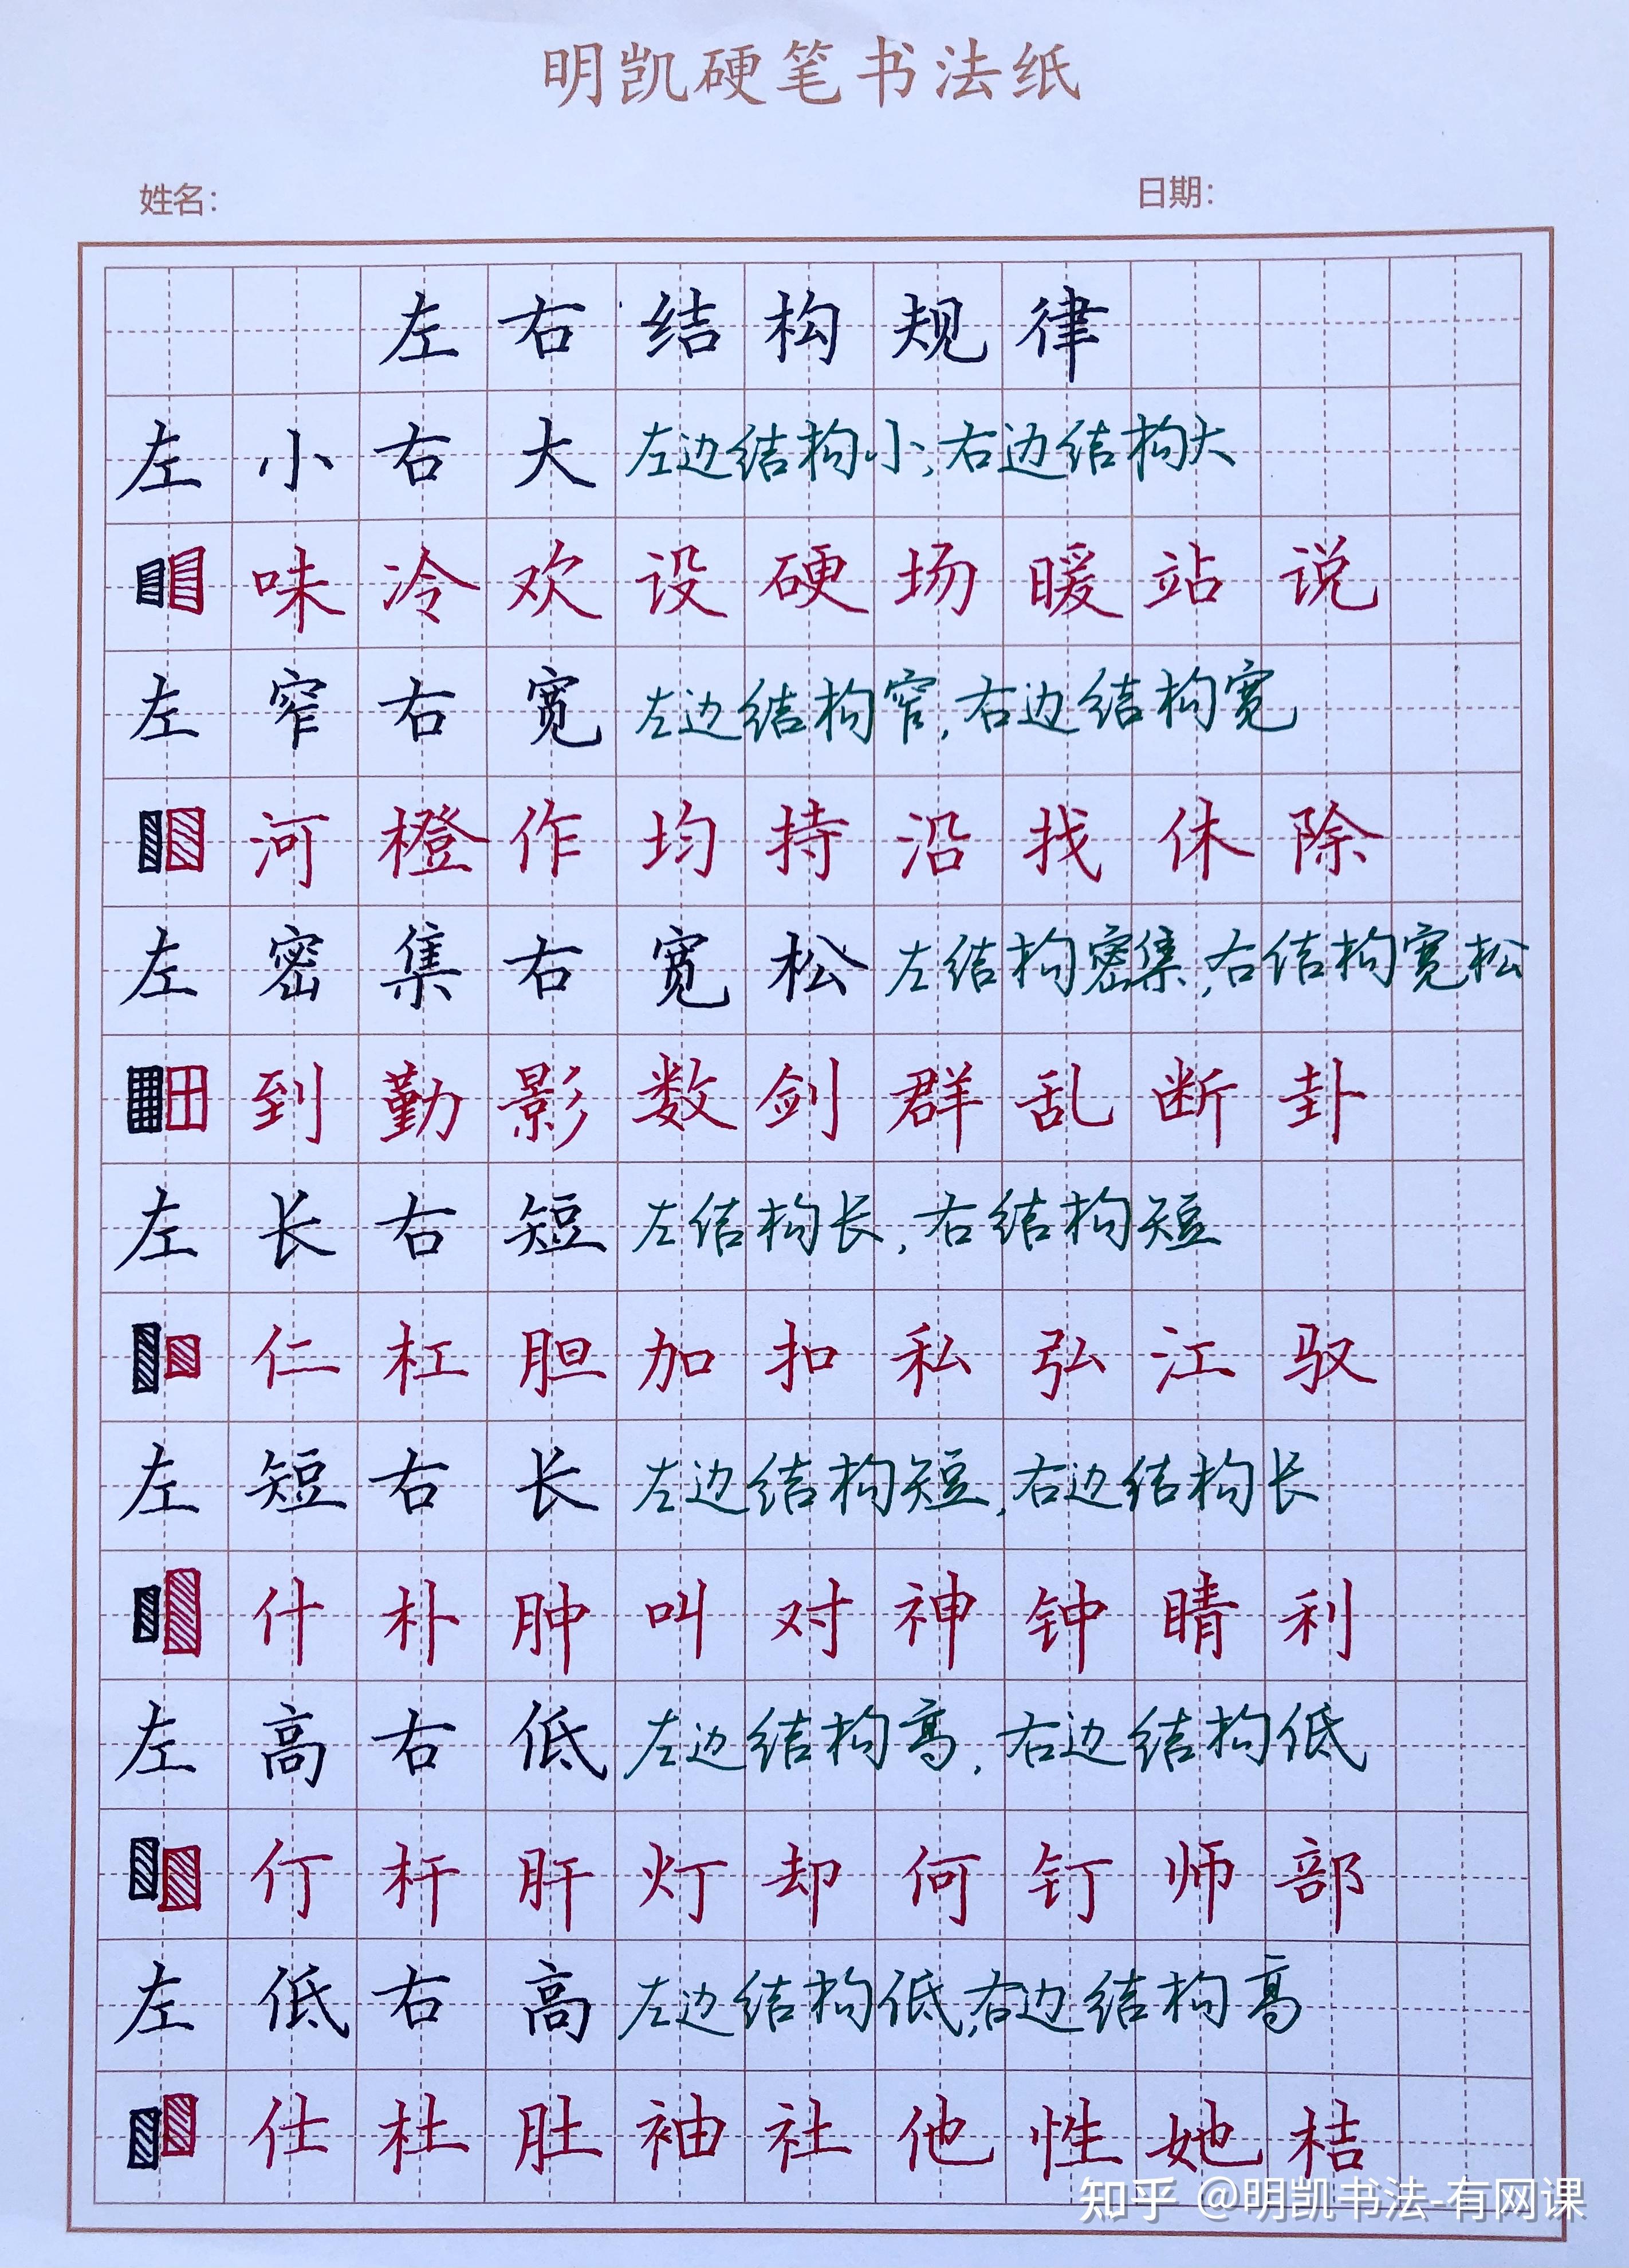 明凯硬笔书法纸
姓名: 日期:
左右结构规律
左小右大 左边结构小,右边结构大
味冷欢设硬场暖站说
左窄右宽 左边结构窄,右边结构宽
河橙作均持沿找休除
左密集右宽松 左结构密集,右结构宽松
到勤影数剑群乱断卦
左长右短 左结构长,右结构短
仁杠胆加扣私弘江驭
左短右长 左边结构短,右边结构长
什朴肿叫对神钟睛利
左高右低 左边结构高,右边结构低
仃杆肝灯却何钉师部
左低右高 左边结构低,右边结构高
仕杜肚袖社他性她桔
知乎 @明凯书法-有网课